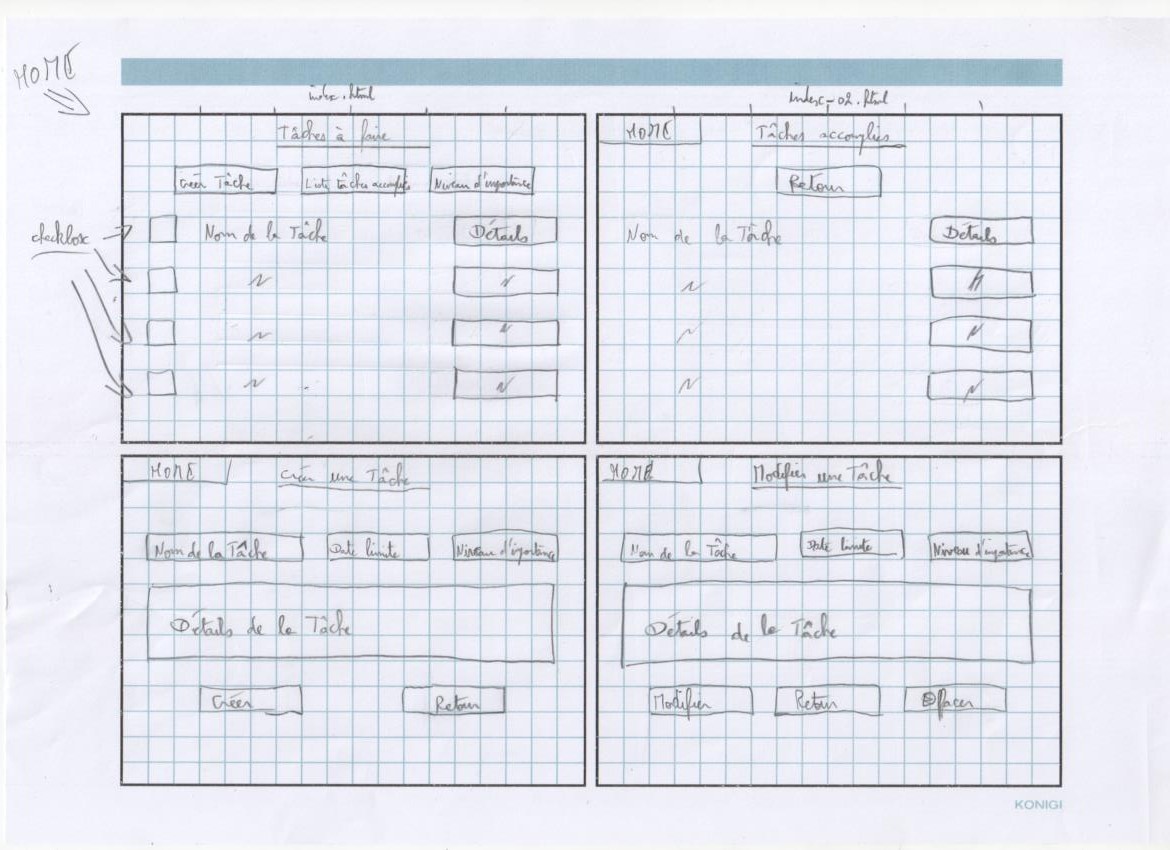 HOME
index.html
index-02.html
Tâches à faire
Créer Tâche
Liste tâches accomplies
Niveau d'importance
checkbox
Nom de la Tâche
Détails
HOME
Tâches accomplies
Retour
Nom de la Tâche
Détails
HOME
Créer une Tâche
Nom de la Tâche
Date limite
Niveau d'importance
Détails de la Tâche
Créer
Retour
HOME
Modifier une Tâche
Nom de la Tâche
Date limite
Niveau d'importance
Détails de la Tâche
Modifier
Retour
Effacer
KONIGI